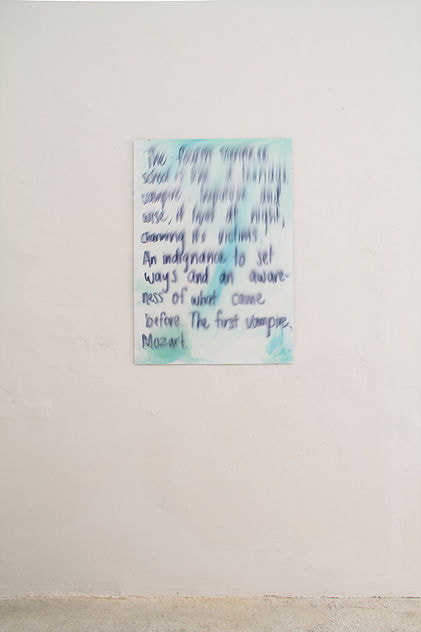 The
school
vampire
wise, it at night,
charming its victims.
An indignance to set
ways and an aware-
ness of what came
before. The first vampire,
Mozart.